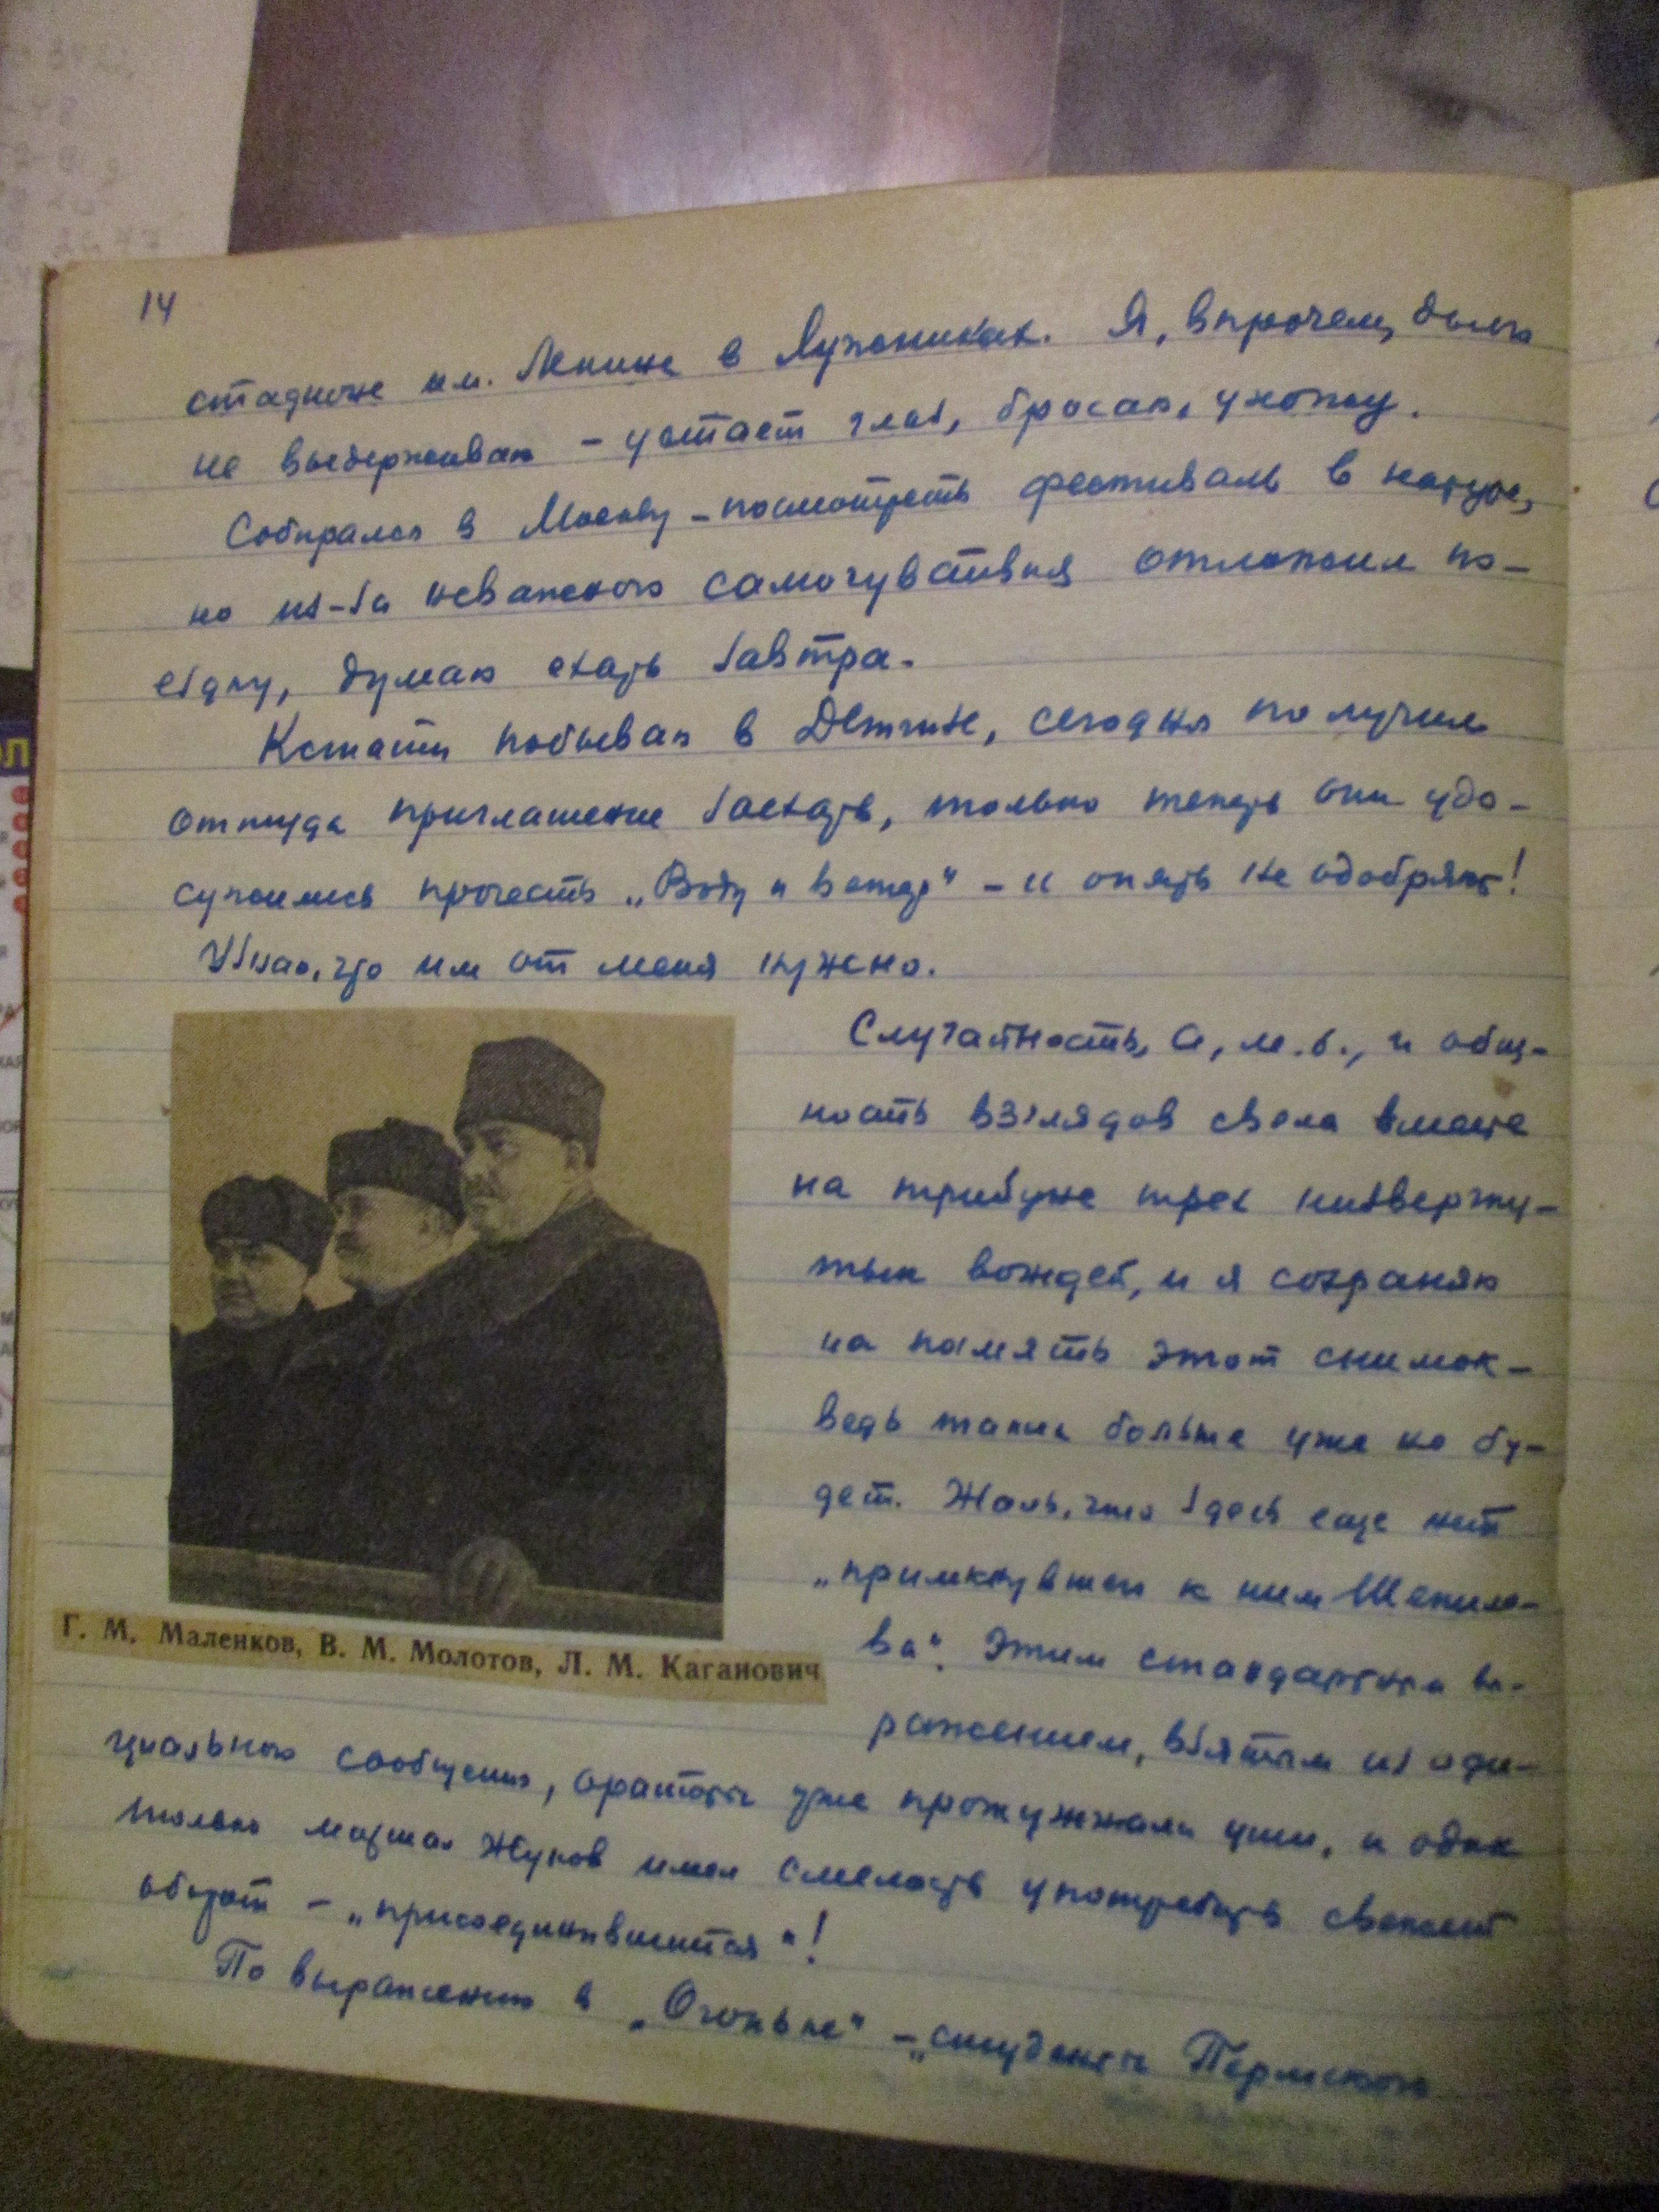 14
стадионе им. Ленина в Лужниках. Я, впрочем, долго
не выдерживаю – устает глаз, бросаю, ухожу.
Собирался в Москву – посмотреть фестиваль в натуре,
но из-за неважного самочувствия отложил по-
ездку, думаю ехать завтра.
Кстати побываю в Детгизе, сегодня получил
оттуда приглашение заехать, только теперь они удо-
сужились прочесть „Воду и ветер“ – и опять не одобряют!
Узнаю, что им от меня нужно.
Случайность, а, м.б., и общ-
ность взглядов свела вместе
на трибуне трех низвергну-
тых вождей, и я сохраняю
на память этот снимок –
ведь таких больше уже не бу-
дет. Жаль, что здесь еще нет
„примкнувшего к ним Шепило-
ва“. Этим стандартным вы-
ражением, взятым из офи-
Г. М. Маленков, В. М. Молотов, Л. М. Каганович
циального сообщения, ораторы уже прожужжали уши, и один
только маршал Жуков имел смелость употребить свежий
оборот – „присоединившийся“!
По выражению в „Огоньке“ – „студенты Пермского